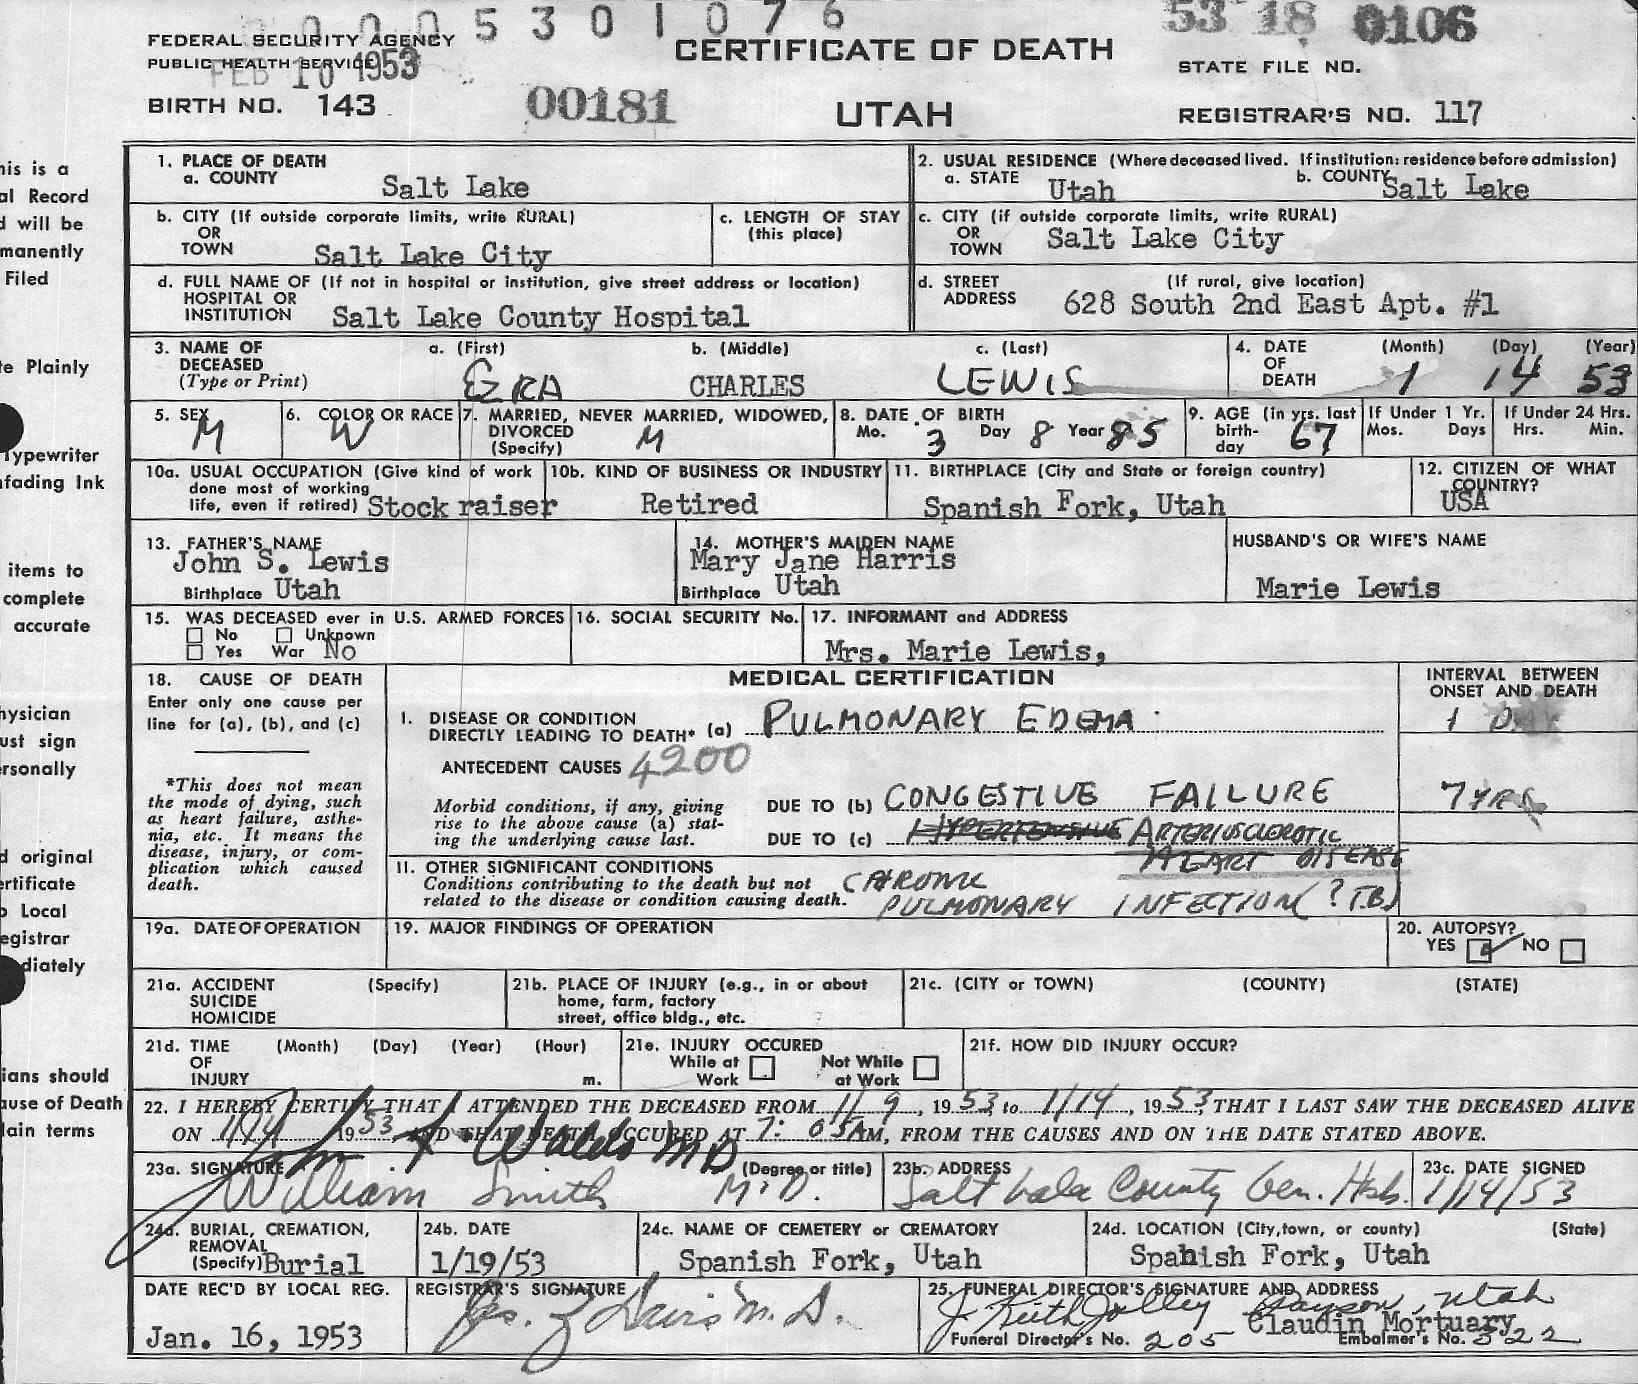 0 0 0 5 3 0 1 0 7 6
53 18 0106
FEDERAL SECURITY AGENCY
PUBLIC HEALTH SERVICE
FEB 10 1953
CERTIFICATE OF DEATH
STATE FILE NO.
BIRTH NO. 143
00181
UTAH
REGISTRAR'S NO. 117
1. PLACE OF DEATH
a. COUNTY Salt Lake
2. USUAL RESIDENCE (Where deceased lived. If institution: residence before admission)
a. STATE Utah b. COUNTY Salt Lake
b. CITY (If outside corporate limits, write RURAL)
OR
TOWN Salt Lake City
c. LENGTH OF STAY
(this place)
c. CITY (if outside corporate limits, write RURAL)
OR
TOWN Salt Lake City
d. FULL NAME OF (If not in hospital or institution, give street address or location)
HOSPITAL OR
INSTITUTION Salt Lake County Hospital
d. STREET (If rural, give location)
ADDRESS 628 South 2nd East Apt. #1
3. NAME OF DECEASED
(Type or Print)
a. (First) b. (Middle) c. (Last)
EZRA CHARLES LEWIS
4. DATE OF DEATH (Month) (Day) (Year)
1 14 53
5. SEX M
6. COLOR OR RACE W
7. MARRIED, NEVER MARRIED, WIDOWED,
DIVORCED
(Specify) M
8. DATE OF BIRTH
Mo. 3 Day 8 Year 85
9. AGE (in yrs. last
birth-
day 67
If Under 1 Yr.
Mos. Days
If Under 24 Hrs.
Hrs. Min.
10a. USUAL OCCUPATION (Give kind of work
done most of working
life, even if retired) Stock raiser
10b. KIND OF BUSINESS OR INDUSTRY
Retired
11. BIRTHPLACE (City and State or foreign country)
Spanish Fork, Utah
12. CITIZEN OF WHAT
COUNTRY?
USA
13. FATHER'S NAME
John S. Lewis
Birthplace Utah
14. MOTHER'S MAIDEN NAME
Mary Jane Harris
Birthplace Utah
HUSBAND'S OR WIFE'S NAME
Marie Lewis
15. WAS DECEASED ever in U.S. ARMED FORCES
No Unknown
Yes War No
16. SOCIAL SECURITY No.
17. INFORMANT and ADDRESS
Mrs. Marie Lewis,
18. CAUSE OF DEATH
Enter only one cause per
line for (a), (b), and (c)
*This does not mean
the mode of dying, such
as heart failure, asthe-
nia, etc. It means the
disease, injury, or com-
plication which caused
death.
MEDICAL CERTIFICATION
INTERVAL BETWEEN
ONSET AND DEATH
I. DISEASE OR CONDITION
DIRECTLY LEADING TO DEATH* (a) PULMONARY EDEMA
1 DAY
ANTECEDENT CAUSES 4200
Morbid conditions, if any, giving
rise to the above cause (a) stat-
ing the underlying cause last.
DUE TO (b) CONGESTIVE FAILURE
7 YRS
DUE TO (c) HYPERTENSIVE ARTERIOSCLEROTIC
HEART DISEASE
II. OTHER SIGNIFICANT CONDITIONS
Conditions contributing to the death but not
related to the disease or condition causing death.
CHRONIC
PULMONARY INFECTION (? T.B.)
19a. DATE OF OPERATION
19. MAJOR FINDINGS OF OPERATION
20. AUTOPSY?
YES NO
21a. ACCIDENT (Specify)
SUICIDE
HOMICIDE
21b. PLACE OF INJURY (e.g., in or about
home, farm, factory
street, office bldg., etc.
21c. (CITY or TOWN) (COUNTY) (STATE)
21d. TIME (Month) (Day) (Year) (Hour)
OF
INJURY m.
21e. INJURY OCCURED
While at Work
Not While at Work
21f. HOW DID INJURY OCCUR?
22. I HEREBY CERTIFY THAT I ATTENDED THE DECEASED FROM 1/9, 1953, to 1/14, 1953, THAT I LAST SAW THE DECEASED ALIVE
ON 1/14 1953 AND THAT DEATH OCCURED AT 7:05 AM, FROM THE CAUSES AND ON THE DATE STATED ABOVE.
John F. Waldo MD
23a. SIGNATURE (Degree or title)
William Smith M.D.
23b. ADDRESS
Salt Lake County Gen. Hosp.
23c. DATE SIGNED
1/14/53
24a. BURIAL, CREMATION,
REMOVAL
(Specify) Burial
24b. DATE
1/19/53
24c. NAME OF CEMETERY or CREMATORY
Spanish Fork, Utah
24d. LOCATION (City, town, or county) (State)
Spanish Fork, Utah
DATE REC'D BY LOCAL REG.
Jan. 16, 1953
REGISTRAR'S SIGNATURE
Davis M. D.
25. FUNERAL DIRECTOR'S SIGNATURE AND ADDRESS
J. Keith Jolley Payson, Utah
Claudin Mortuary
Funeral Director's No. 205 Embalmer's No. 322
his is a
al Record
d will be
manently
Filed
te Plainly
Typewriter
nfading Ink
items to
complete
accurate
hysician
ust sign
ersonally
d original
ertificate
o Local
egistrar
diately
ians should
ause of Death
lain terms